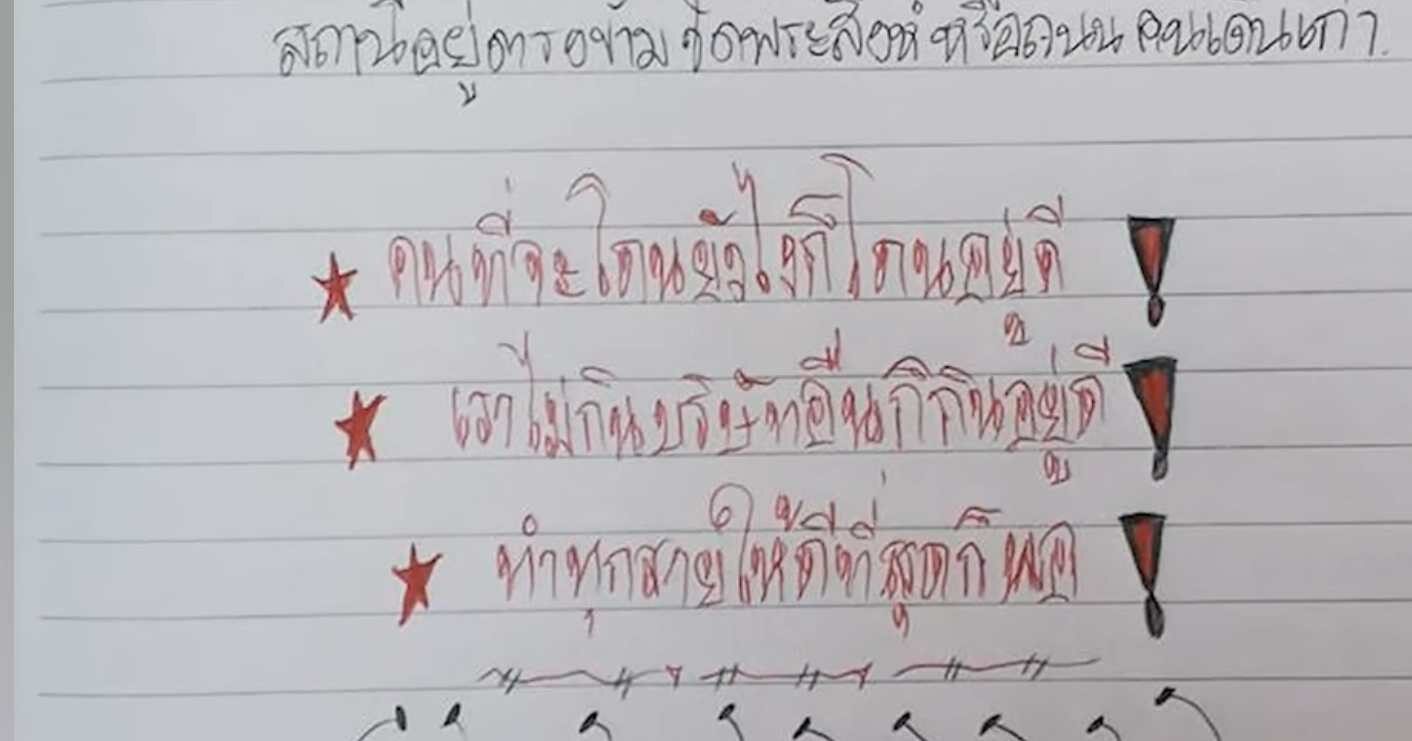 สถานีอยู่ตรงข้ามวัดพระสิงห์ หรือถนนคนเดินเก่า.
คนที่จะโดนยังไงก็โดนอยู่ดี
เราไม่กินบริษัทอื่นก็กินอยู่ดี
ทำทุกสายให้ดีที่สุดก็พอ